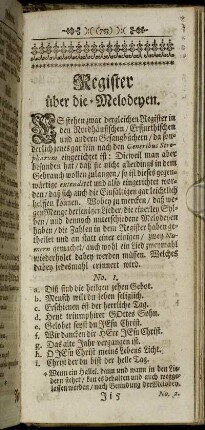 (753)
Register
über die Melodeyen.
ES stehen zwar dergleichen Register in
den Nordhäusischen, Erfurthischen
und andern Gesangbüchern, da son-
derlich jenes gar fein nach den Generibus Stro-
pharum eingerichtet ist: Dieweil man aber
befunden hat / daß sie nicht allerdings in dem
Gebrauch wollen zulangen / so ist dieses gegen-
wärtige extendiret und also eingerichtet wor-
den / daß sich auch die Einfältigen gar leichtlich
helffen können. Wobey zu mercken / daß we-
gen Menge derjenigen Lieder, die einerley Syl-
ben / und doch unterschiedene Melodeyen
haben / die Zahlen in dem Register haben ge-
theilet und an statt einer einigen / zwey Nu-
mern gemachet; auch wohl ein Lied zweymahl
wiederholet dabey werden müssen. Welches
dabey jedesmahl erinnert wird.
No. 1.
a. Diß sind die heilgen zehen Gebot.
b. Mensch wilt du leben seliglich.
c. Erschienen ist der herrliche Tag.
d. Heut triumphiret GOttes Sohn.
e. Gelobet seyst du JEsu Christ.
f. Wir dancken dir HErr JEsu Christ.
g. Das alte Jahr vergangen ist.
h. O JEsu Christ meins Lebens Licht.
i. Christ der du bist der helle Tag.
* Wenn ein Hallel. dann und wann in den Lie-
dern stehet / kan es behalten und auch wegge-
lassen werden / nach Gewohnheit der Melodeyen.
Jii 5
No. 2.